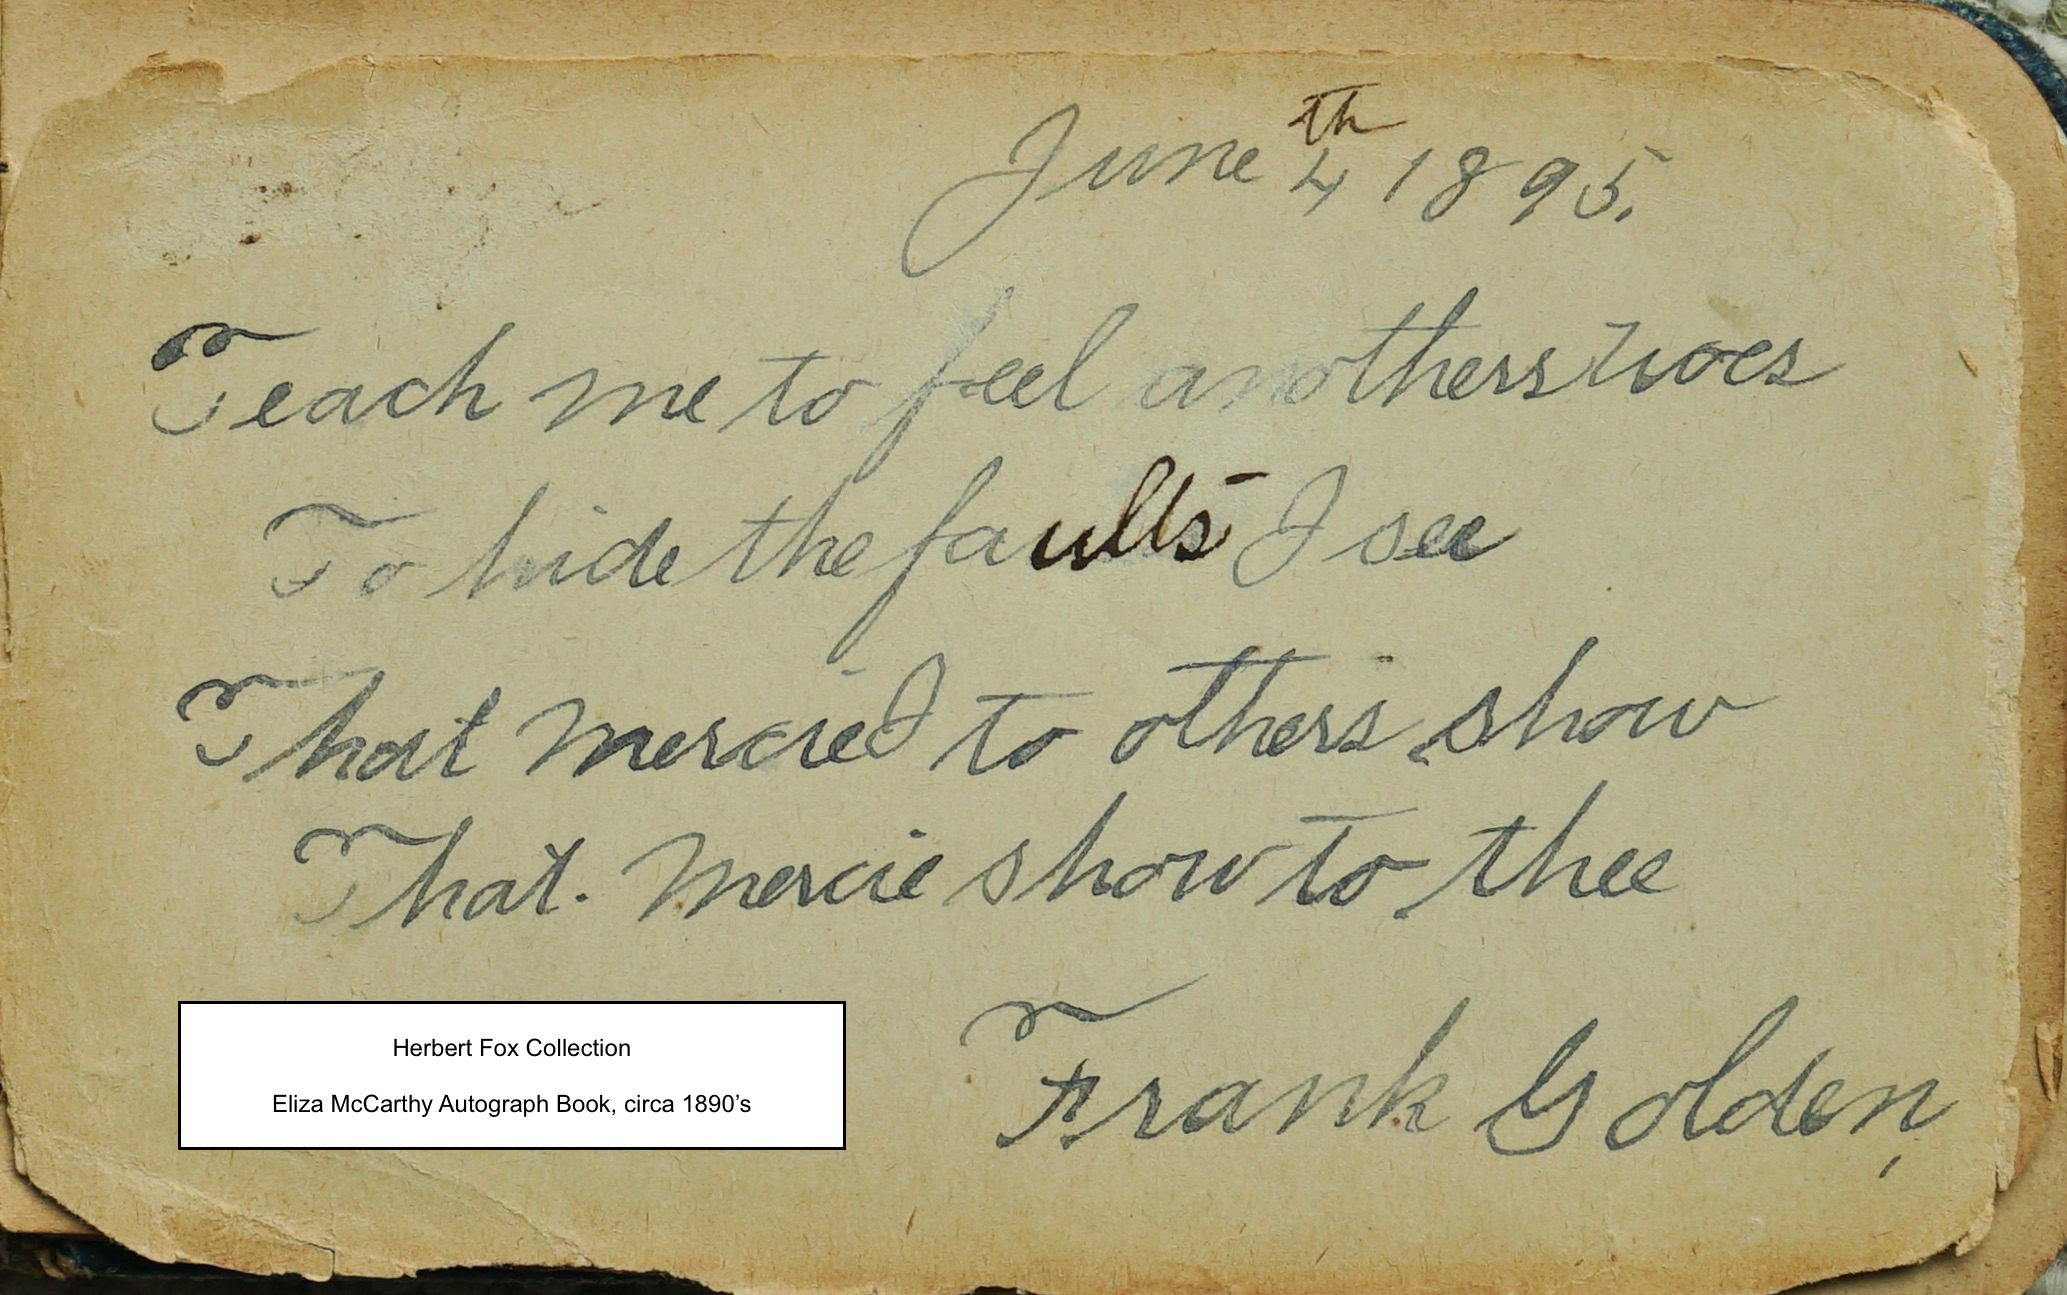 June 4th 1895.
Teach me to feel anothers woes
To hide the faults I see
That mercie I to others show
That. mercie show to thee
Frank Golden,
Herbert Fox Collection
Eliza McCarthy Autograph Book, circa 1890’s